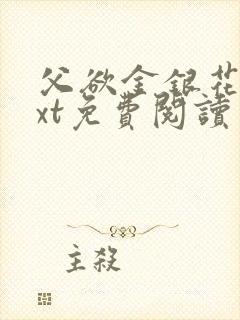 父欲金银花
xt免費閱讀
主殺